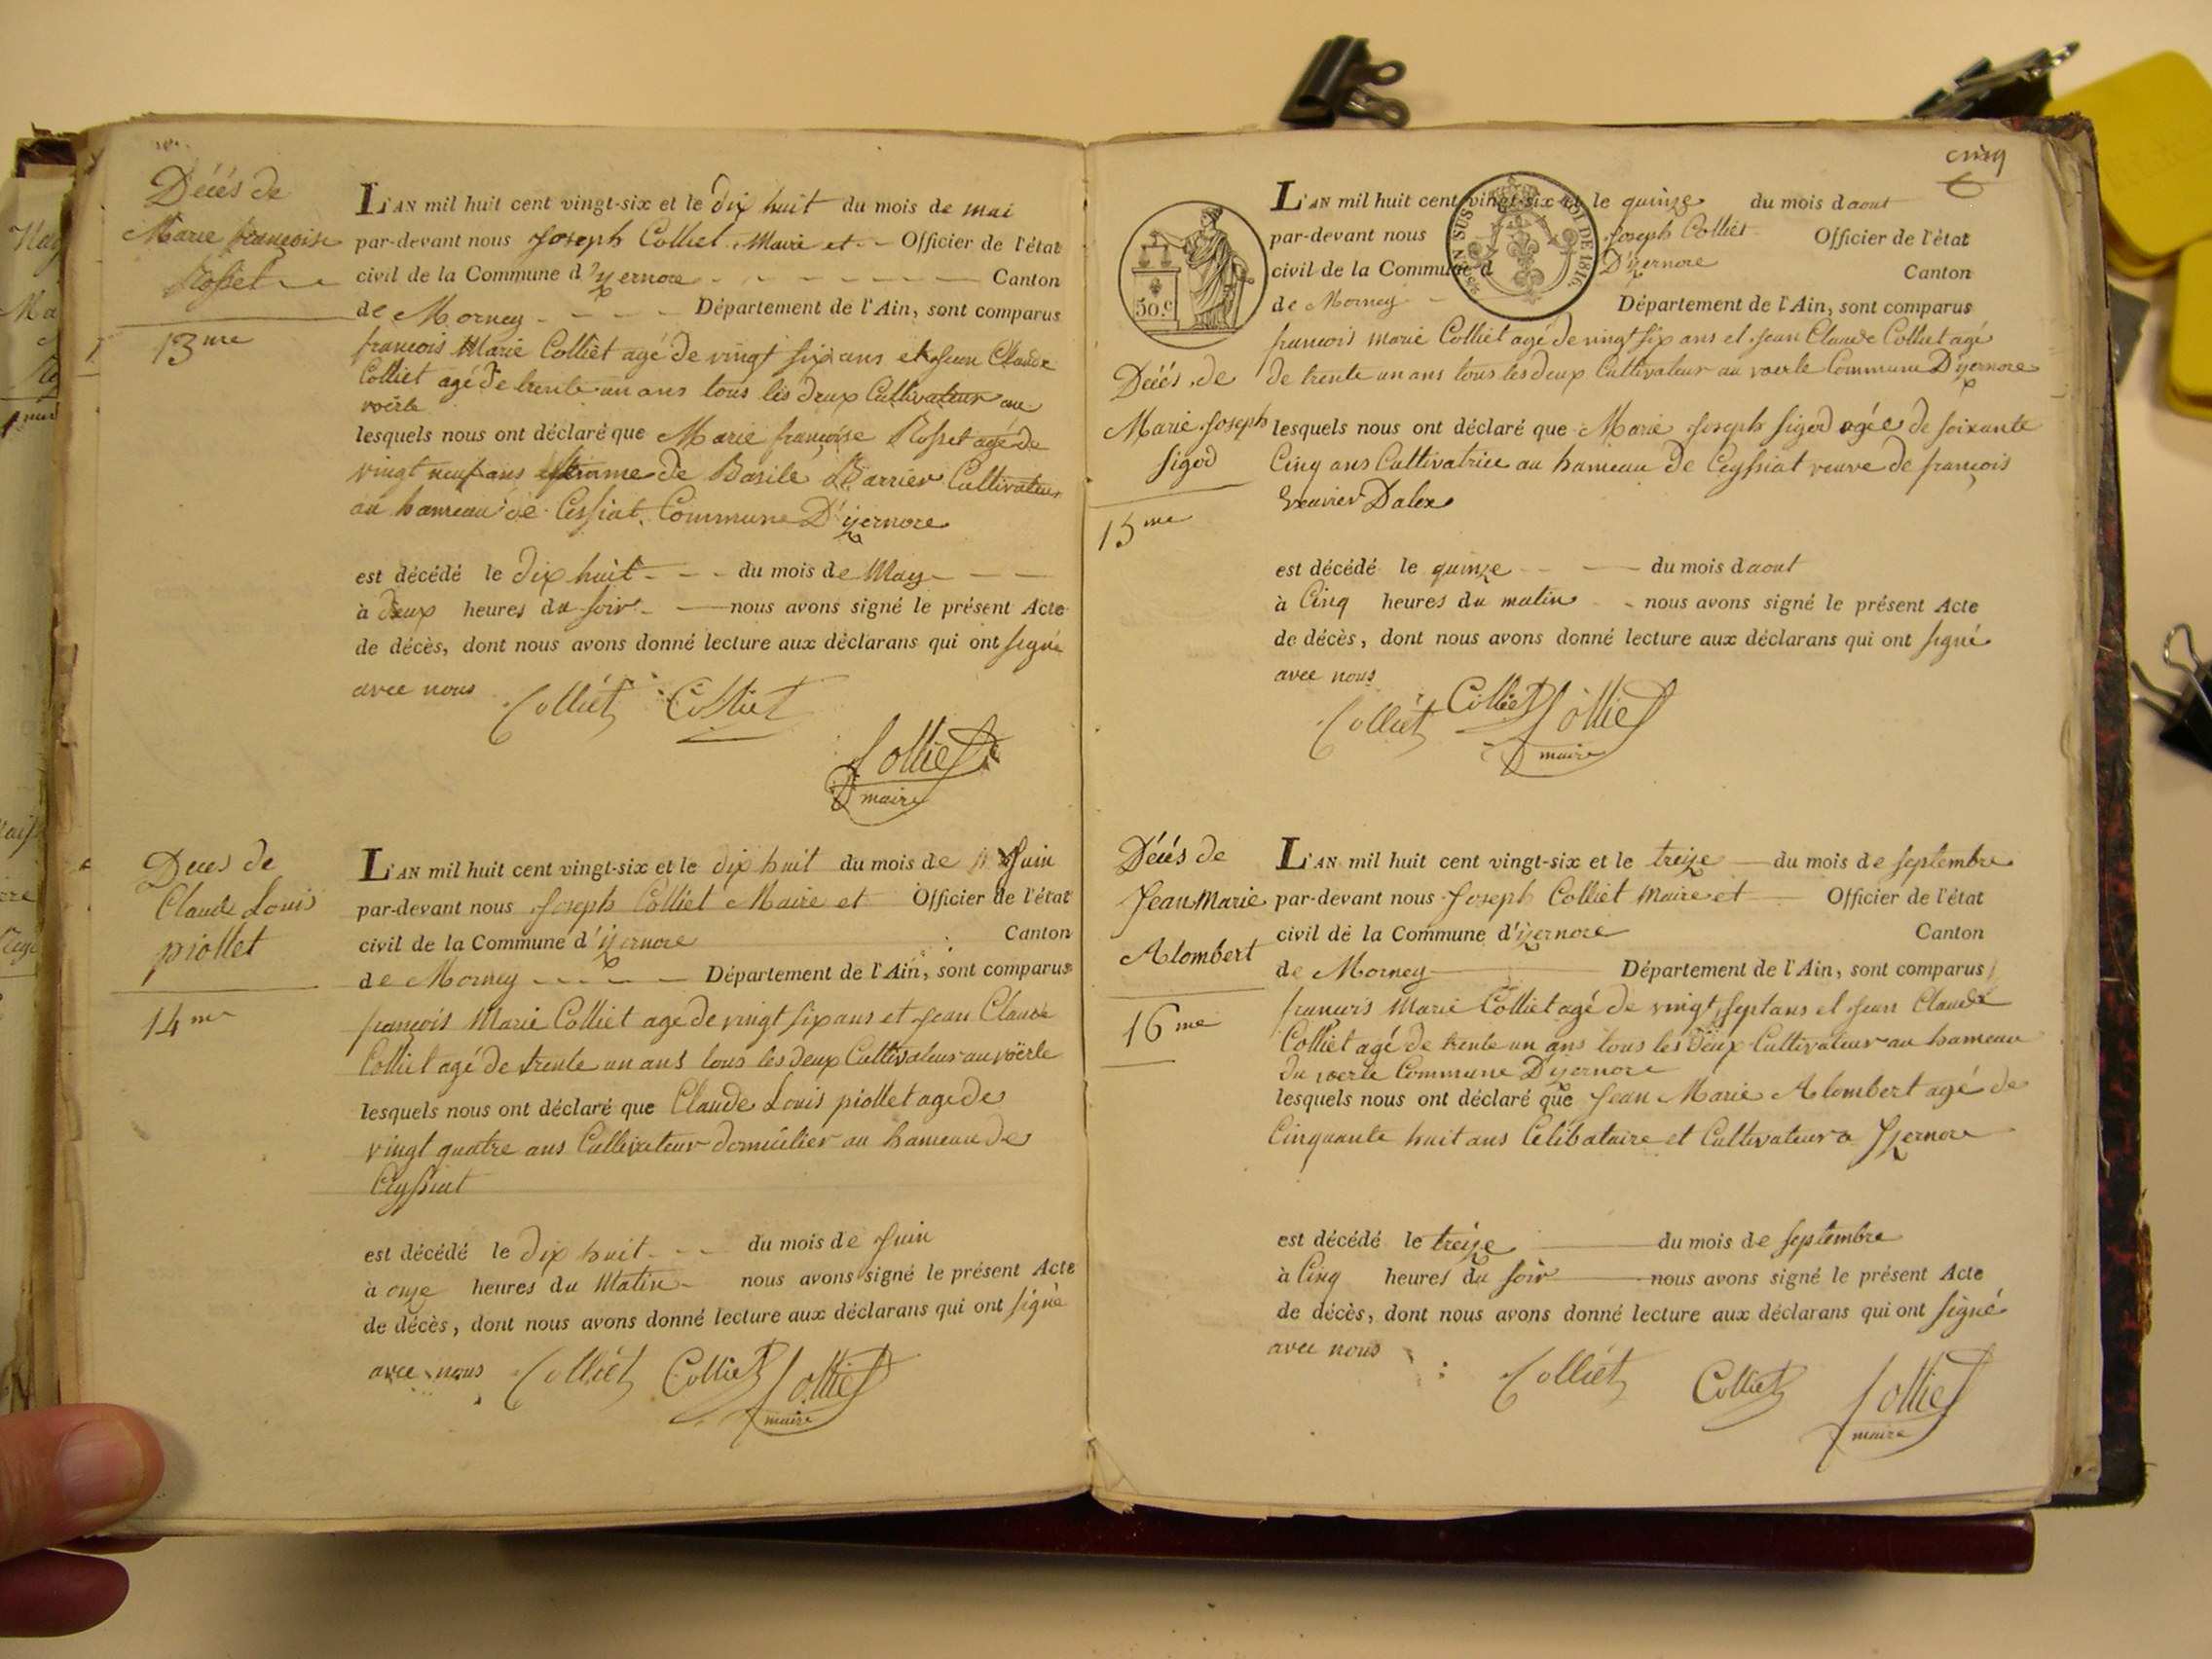 Décés de
Marie françoise
Rosset
13me
L'AN mil huit cent vingt-six et le dix huit du mois de mai
par-devant nous Joseph Colliet Maire et Officier de l'état
civil de la Commune d'yzernore Canton
de Morney Département de l'Ain, sont comparus
francois Marie Colliet agé de vingt six ans et Jean Claude
Colliet agé de trente un ans tous les deux Cultivateur au
voërle
lesquels nous ont déclaré que Marie françoise Rosset agé de
vingt neuf ans femme de Basile Cultivateur
au hameau de Cessiat Commune D'yzernore
est décédé le dix huit du mois de May
à deux heures du soir nous avons signé le présent Acte
de décès, dont nous avons donné lecture aux déclarans qui ont signé
avec nous Colliet Colliet
Colliet
maire
Deces de
Claude Louis
piollet
14me
L'AN mil huit cent vingt-six et le dix huit du mois de Juin
par-devant nous Joseph Colliet Maire et Officier de l'état
civil de la Commune d'yzernore Canton
de Morney Département de l'Ain, sont comparus
françois Marie Colliet agé de vingt six ans et Jean Claude
Colliet agé de trente un ans tous les deux Cultivateur au voërle
lesquels nous ont déclaré que Claude Louis piollet age de
vingt quatre ans Cultivateur domicilier au hameau de
Ceyssiat
est décédé le dix huit du mois de Juin
à onze heures du Matin nous avons signé le présent Acte
de décès, dont nous avons donné lecture aux déclarans qui ont signé
avec nous Colliet Colliet Colliet
maire
cinq
50.c
EN SUS LOI DE 1816.
Décés de
Marie Joseph
Sigod
15me
L'AN mil huit cent vingt-six et le quinze du mois daout
par-devant nous Joseph Colliet Officier de l'état
civil de la Commune d D'yzernore Canton
de Morney Département de l'Ain, sont comparus
francois marie Colliet agé de vingt six ans et Jean Claude Colliet agé
de trente un ans tous les deux Cultivateur au voerle Commune D'yzernore
lesquels nous ont déclaré que Marie Joseph Sigod agée de soixante
Cinq ans Cultivatrice au hameau de Ceyssiat veuve de françois
Dalex
est décédé le quinze du mois daout
à Cinq heures du matin nous avons signé le présent Acte
de décès, dont nous avons donné lecture aux déclarans qui ont signé
avec nous
Colliet Colliet Colliet
maire
Décés de
Jean Marie
Alombert
16me
L'AN mil huit cent vingt-six et le treize du mois de septembre
par-devant nous Joseph Colliet Maire et Officier de l'état
civil de la Commune d'yzernore Canton
de Morney Département de l'Ain, sont comparus
francois Marie Colliet agé de vingt sept ans et Jean Claude
Colliet agé de trente un ans tous les deux Cultivateur au hameau
du voerle Commune D'yzernore
lesquels nous ont déclaré que Jean Marie Alombert agé de
Cinquante huit ans Célibataire et Cultivateur a Yzernore
est décédé le treize du mois de septembre
à Cinq heures du soir nous avons signé le présent Acte
de décès, dont nous avons donné lecture aux déclarans qui ont signé
avec nous Colliet Colliet Colliet
maire